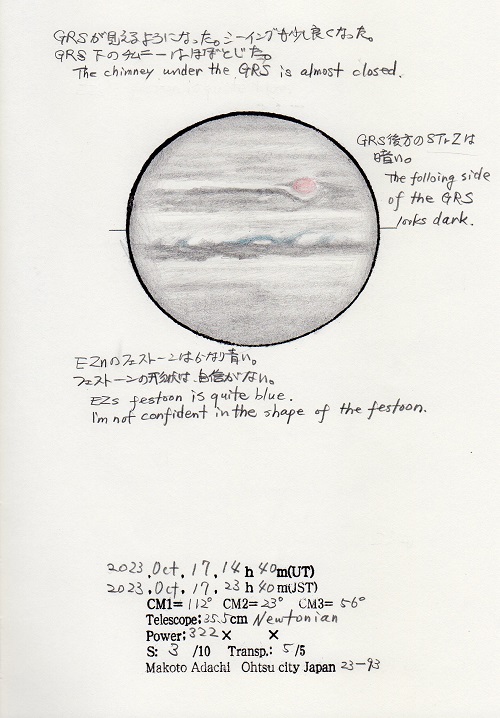 GRSが見えるようになった。シーイングも少し良くなった。
GRS下のチムニーはほぼとじた。
The chimney under the GRS is almost closed.
GRS後方のSTrZは
暗い。
The folloing side
of the GRS
looks dark.
EZnのフェストーンはかなり青い。
フェストーンの形状は自信がない。
EZs festoon is quite blue.
I'm not confident in the shape of the festoon.
2023.Oct. 17, 14h 40m(UT)
2023.Oct. 17, 23h 40m(JST)
CM1=112° CM2=23° CM3=56°
Telescope:35.5cm Newtonian
Power:322× ×
S: 3 /10 Transp.: 5/5
Makoto Adachi Ohtsu city Japan 23-93